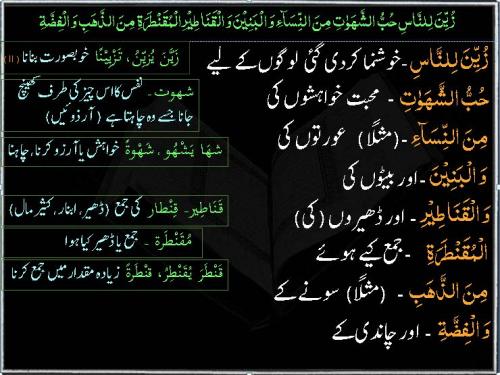 زُیِّنَ لِلنَّاسِ حُبُّ الشَّهَوٰتِ مِنَ النِّسَآءِ وَالْبَنِیْنَ وَالْقَنَاطِیْرِ الْمُقَنْطَرَةِ مِنَ الذَّهَبِ وَالْفِضَّةِ
زُیِّنَ لِلنَّاسِ - خوشنما کردی گئی لوگوں کے لیے
زَیَّنَ یُزَیِّنُ، تَزْیِیْنًا خوبصورت بنانا (II)
حُبُّ الشَّهَوٰتِ - محبت خواہشوں کی
شہوت - نفس کا اس چیز کی طرف کھینچ
جانا جسے وہ چاہتا ہے (آرزوئیں)
مِنَ النِّسَآءِ - (مثلًا) عورتوں کی
شَهَا یَشْهُو، شَهْوَةً خواہش یا آرزو کرنا، چاہنا
وَالْبَنِیْنَ - اور بیٹوں کی
وَالْقَنَاطِیْرِ - اور ڈھیروں (کی)
قَنَاطِیر - قِنْطَار کی جمع (ڈھیر، انبار، کثیر مال)
الْمُقَنْطَرَةِ - جمع کیے ہوئے
مُقَنْطَرَة - جمع یا ڈھیر کیا ہوا
مِنَ الذَّهَبِ - (مثلًا) سونے کے
قَنْطَرَ یُقَنْطِرُ، قَنْطَرَةً زیادہ مقدار میں جمع کرنا
وَالْفِضَّةِ - اور چاندی کے